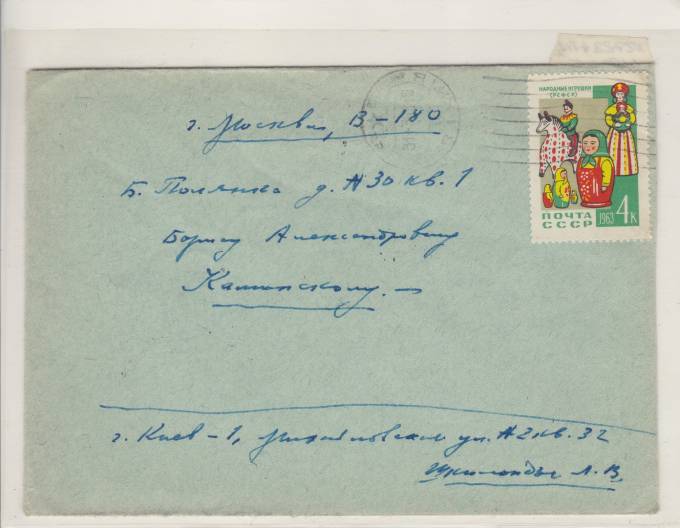 НАРОДНЫЕ ИГРУШКИ
(РСФСР)
ПОЧТА
СССР
1963 4 К
г. Москва, В-180
Б. Полянка д. №30 кв. 1
Борису Александровичу
Каминскому. —
г. Киев-1, Михайловская ул. №2 кв. 32
Л. В.